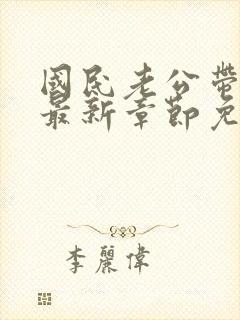 國民老公帶
最新章節免
李麗偉